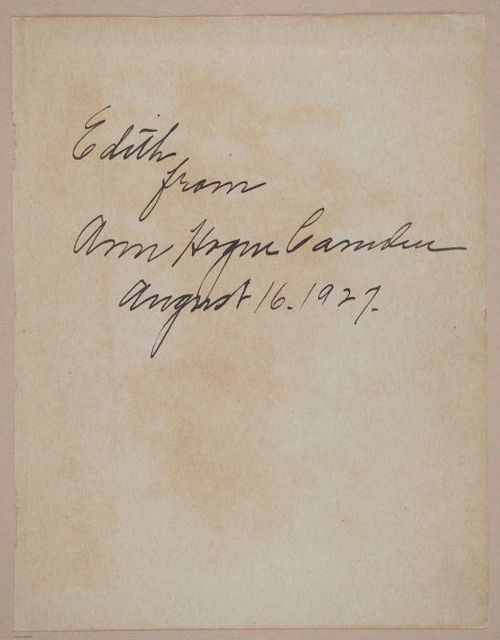 Edith
from
Ann Hogue Camden
August 16. 1927.